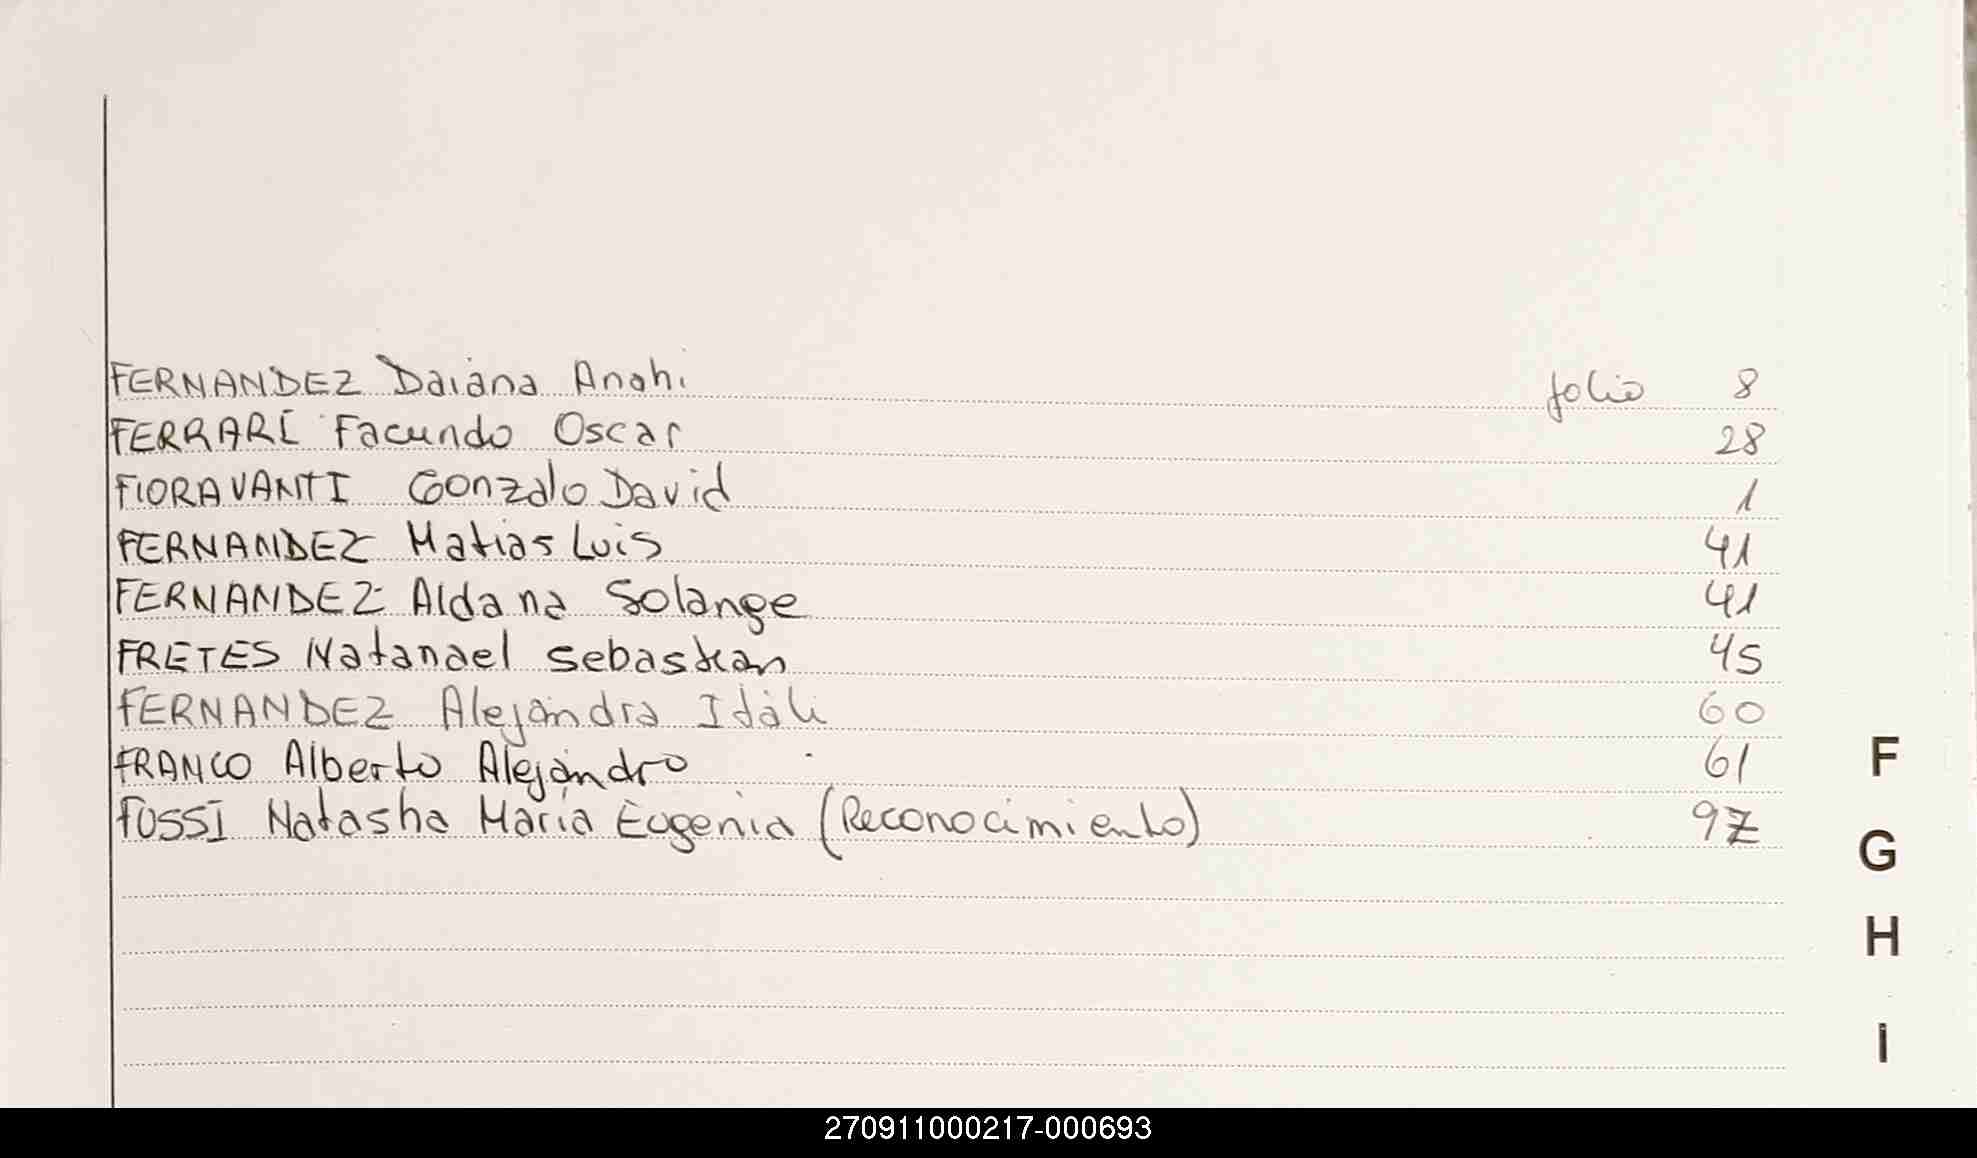 FERNANDEZ Daiana Anahi folio 8
FERRARI Facundo Oscar 28
FIORAVANTI Gonzalo David 1
FERNANDEZ Matias Luis 41
FERNANDEZ Aldana Solange 41
FRETES Natanael Sebastian 45
FERNANDEZ Alejandra Idali 60
FRANCO Alberto Alejandro 61
FUSSI Natasha Maria Eugenia (Reconocimiento) 97
F
G
H
I
270911000217-000693